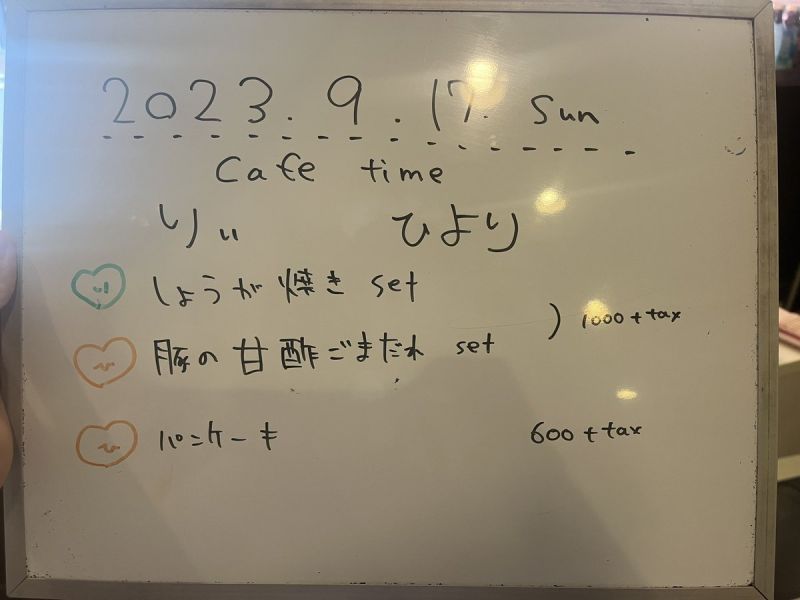 2023. 9. 17. Sun
Cafe time
りぃ ひより
り しょうが焼き set
) 1000 + tax
ひ 豚の甘酢ごまだれ set
ひ パンケーキ 600 + tax